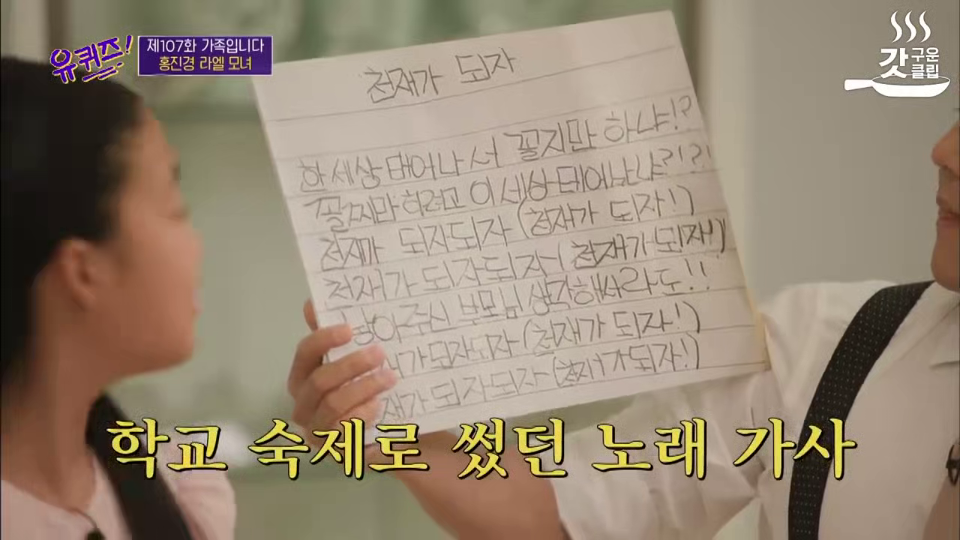 유퀴즈!
제107화 가족입니다
홍진경 라엘 모녀
갓 구운
클립
천재가 되자
한 세상 태어나서 꼴지만 하냐!?
꼴찌만 하려고 이 세상 태어났냐?!?!
천재가 되자되자 (천재가 되자!)
천재가 되자되자 (천재가 되자!)
낳아주신 부모님 생각해서라도!!
가되자되자 (천재가 되자!)
재가 되자되자 (천재가되자!)
학교 숙제로 썼던 노래 가사